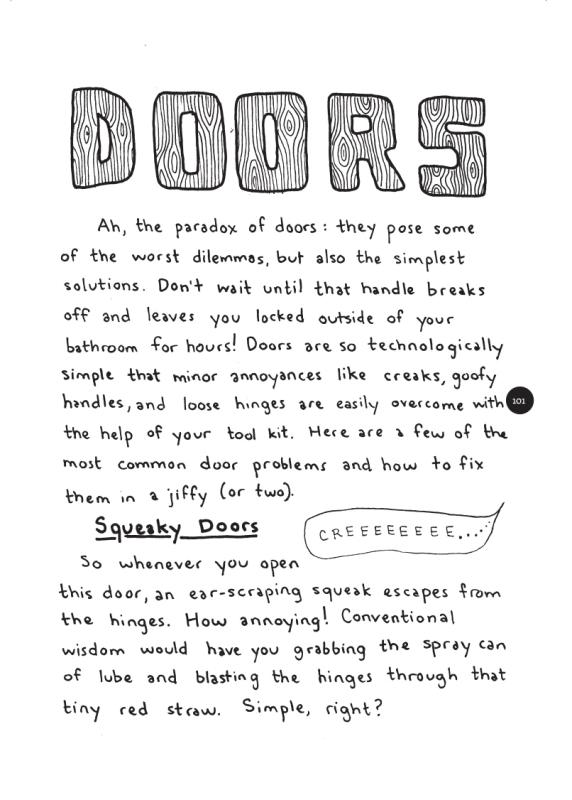 DOORS
Ah, the paradox of doors: they pose some
of the worst dilemmas, but also the simplest
solutions. Don't wait until that handle breaks
off and leaves you locked outside of your
bathroom for hours! Doors are so technologically
simple that minor annoyances like creaks, goofy
handles, and loose hinges are easily overcome with
101
the help of your tool kit. Here are a few of the
most common door problems and how to fix
them in a jiffy (or two).
Squeaky Doors
CREEEEEEEE....
So whenever you open
this door, an ear-scraping squeak escapes from
the hinges. How annoying! Conventional
wisdom would have you grabbing the spray can
of lube and blasting the hinges through that
tiny red straw. Simple, right?